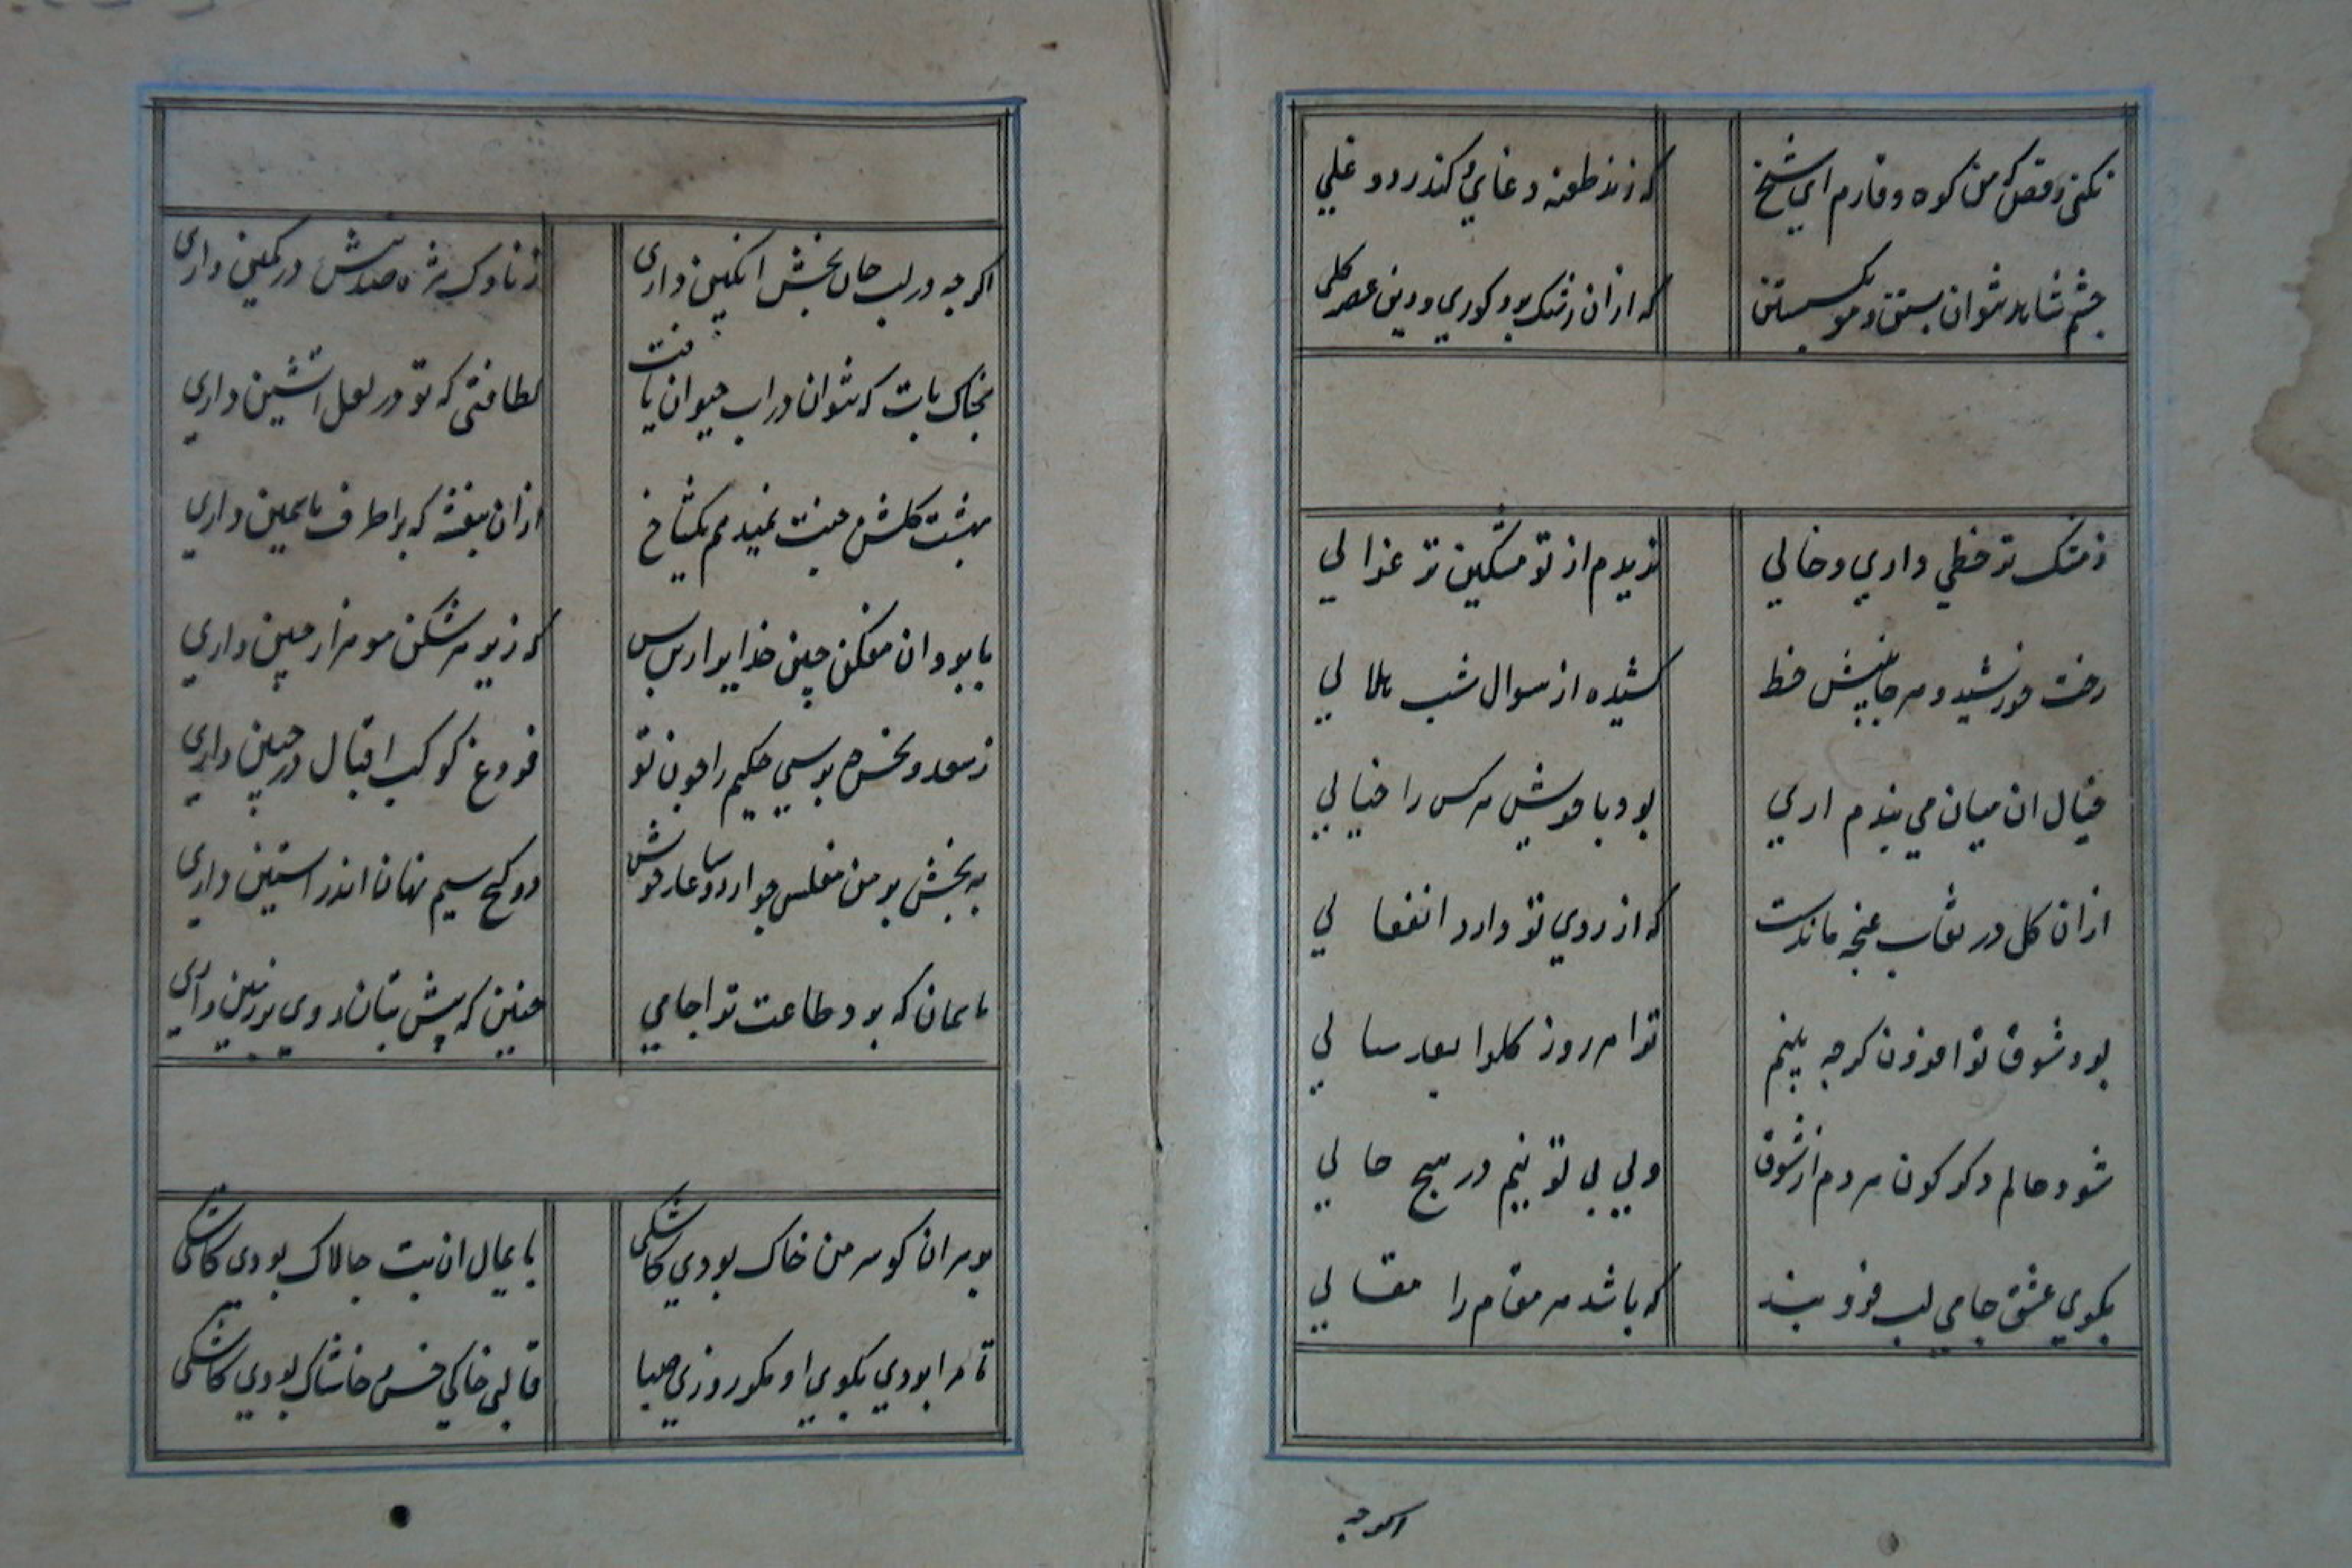 نکنی رقص که من کوه وقارم ای شیخ
که زند طعنه دغایی و کند رد دغلی
چشم شاهد نتوان بستن و مو بگسستن
که ازان زشت بود کوری و وین عصر کلی
ز مشک تر خطی داری و خالی
ندیدم از تو مشکین تر غزالی
رخت خورشید و هر جانبش خط
کشیده از سوال شب هلالی
خیال ان میان می بندم اری
بود با خویش هرکس را خیالی
ازان کل در نقاب غنچه ماندست
که از روی تو دارد انفعالی
بود شوق تو افزون کر چه بینم
ترا هر روز کلرا بعد سالی
شود حالم دکر کون هر دم از شوق
ولی بی تو نیم در هیچ حالی
بکوی عشق جامی لب فرو بند
که باشد هر مقام را مقالی
اکرچه
اکرچه در لب جان بخش انکبین داری
ز ناوک مژه صد نیش در کمین داری
بخاک پات که نتوان در اب حیوان یافت
لطافتی که تو در لعل اتشین داری
بهشت کلشن جنت نمیدهم یکشاخ
ازان بنفشه که بر اطرف یاسمین داری
بابروان مفکن چین خدایرا و بپرس
که زیر هر شکن مو هزار چین داری
ز سعد و نحس چه پرسی حکیم را چون تو
فروغ کوکب اقبال در جبین داری
به بخش بر من مفلس چو از دو ساعد خویش
دو کنج سیم نهان اندر استین داری
همان که بود طاعت ترا جامی
چنین که پیش بتان روی بر زمین داری
بر سر ان کو سر من خاک بودی کاشکی
پایمال ان بت چالاک بودی کاشکی
تا مرا بردی بکوی او مکر روزی صبا
قالب خاکی خس و خاشاک بودی کاشکی